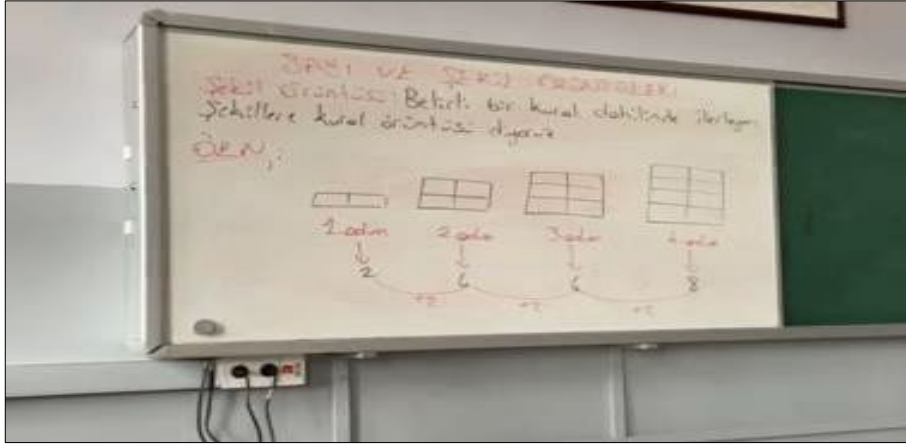 SAYI VE ŞEKİL ÖRÜNTÜLERİ
Şekil örüntüsü: Belirli bir kural dahilinde ilerleyen
Şekillere kural örüntüsü diyoruz
ÖRN:
1.adım 2.adım 3.adım 4.adım
2 6 6 8
+2 +2 +2